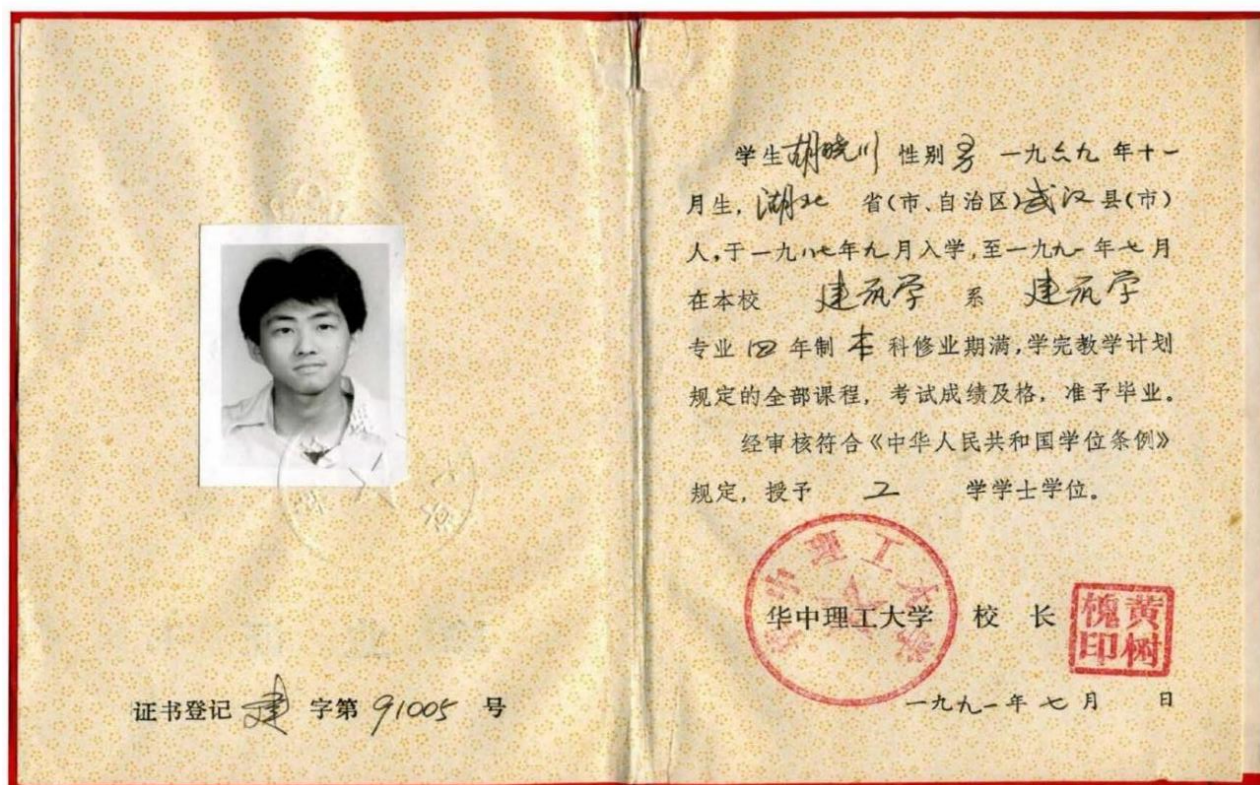 证书登记 建 字第 91005 号
学生胡晓川 性别男 一九六九年十一
月生，湖北 省(市、自治区)武汉县(市)
人，于一九八七年九月入学，至一九九一年七月
在本校 建筑学 系 建筑学
专业四年制本科修业期满，学完教学计划
规定的全部课程，考试成绩及格，准予毕业。
经审核符合《中华人民共和国学位条例》
规定，授予 工 学学士学位。
华中理工大学
华中理工大学 校 长
黄树槐印
一九九一年七月 日